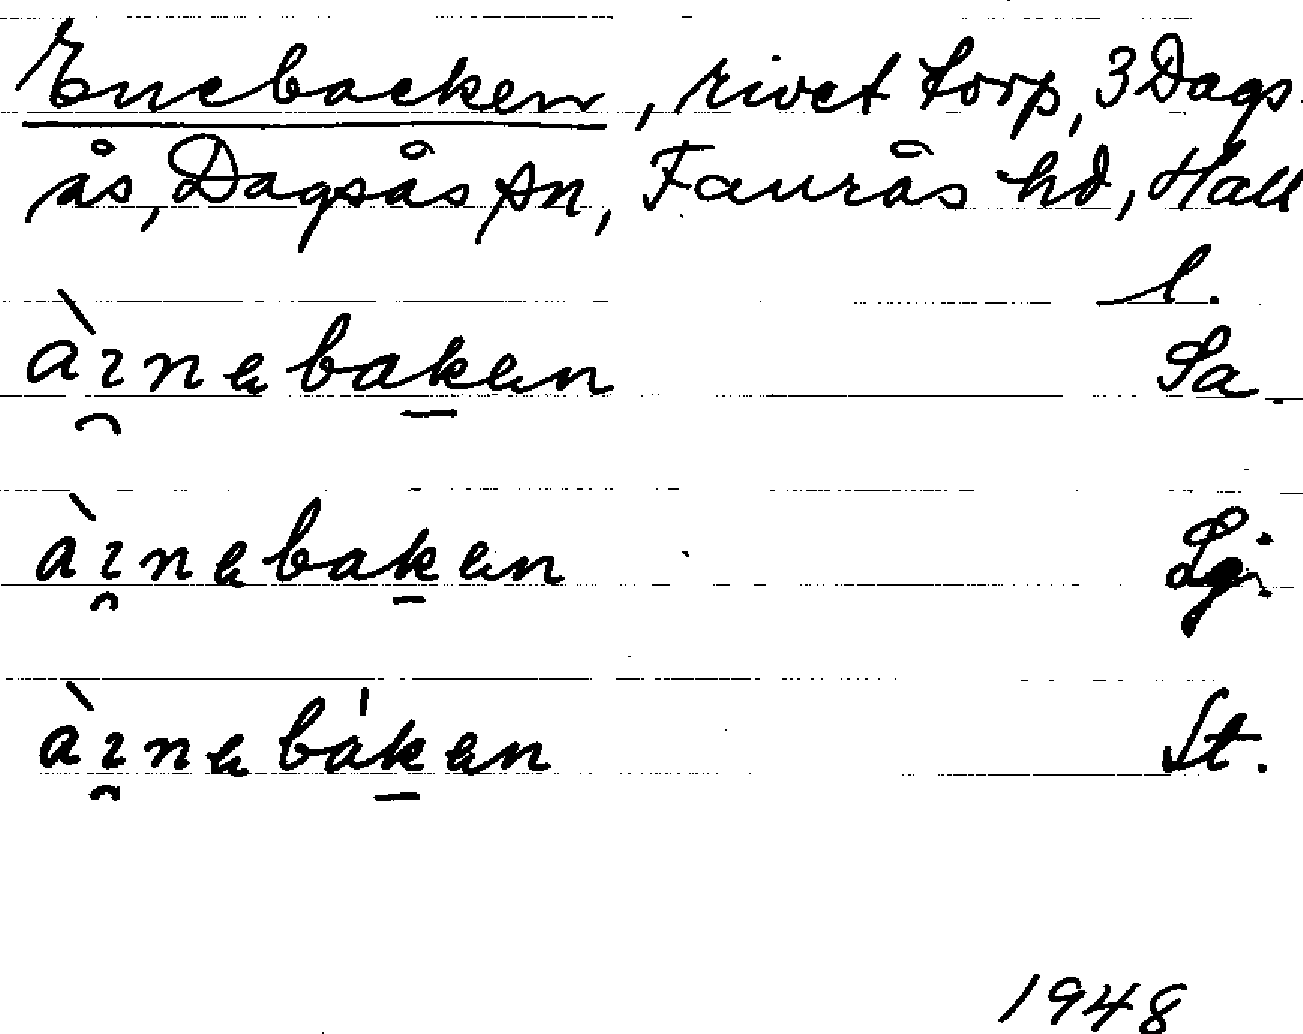 Enebacken, rivet torp, 3 Dags
ås, Dagsås sn, Faurås hd, Hall
l.
àɪ̯nəbak̲ən Sa.
àɪ̯nəbak̲ən Lg.
àɪ̯nəbák̲ən St.
1948